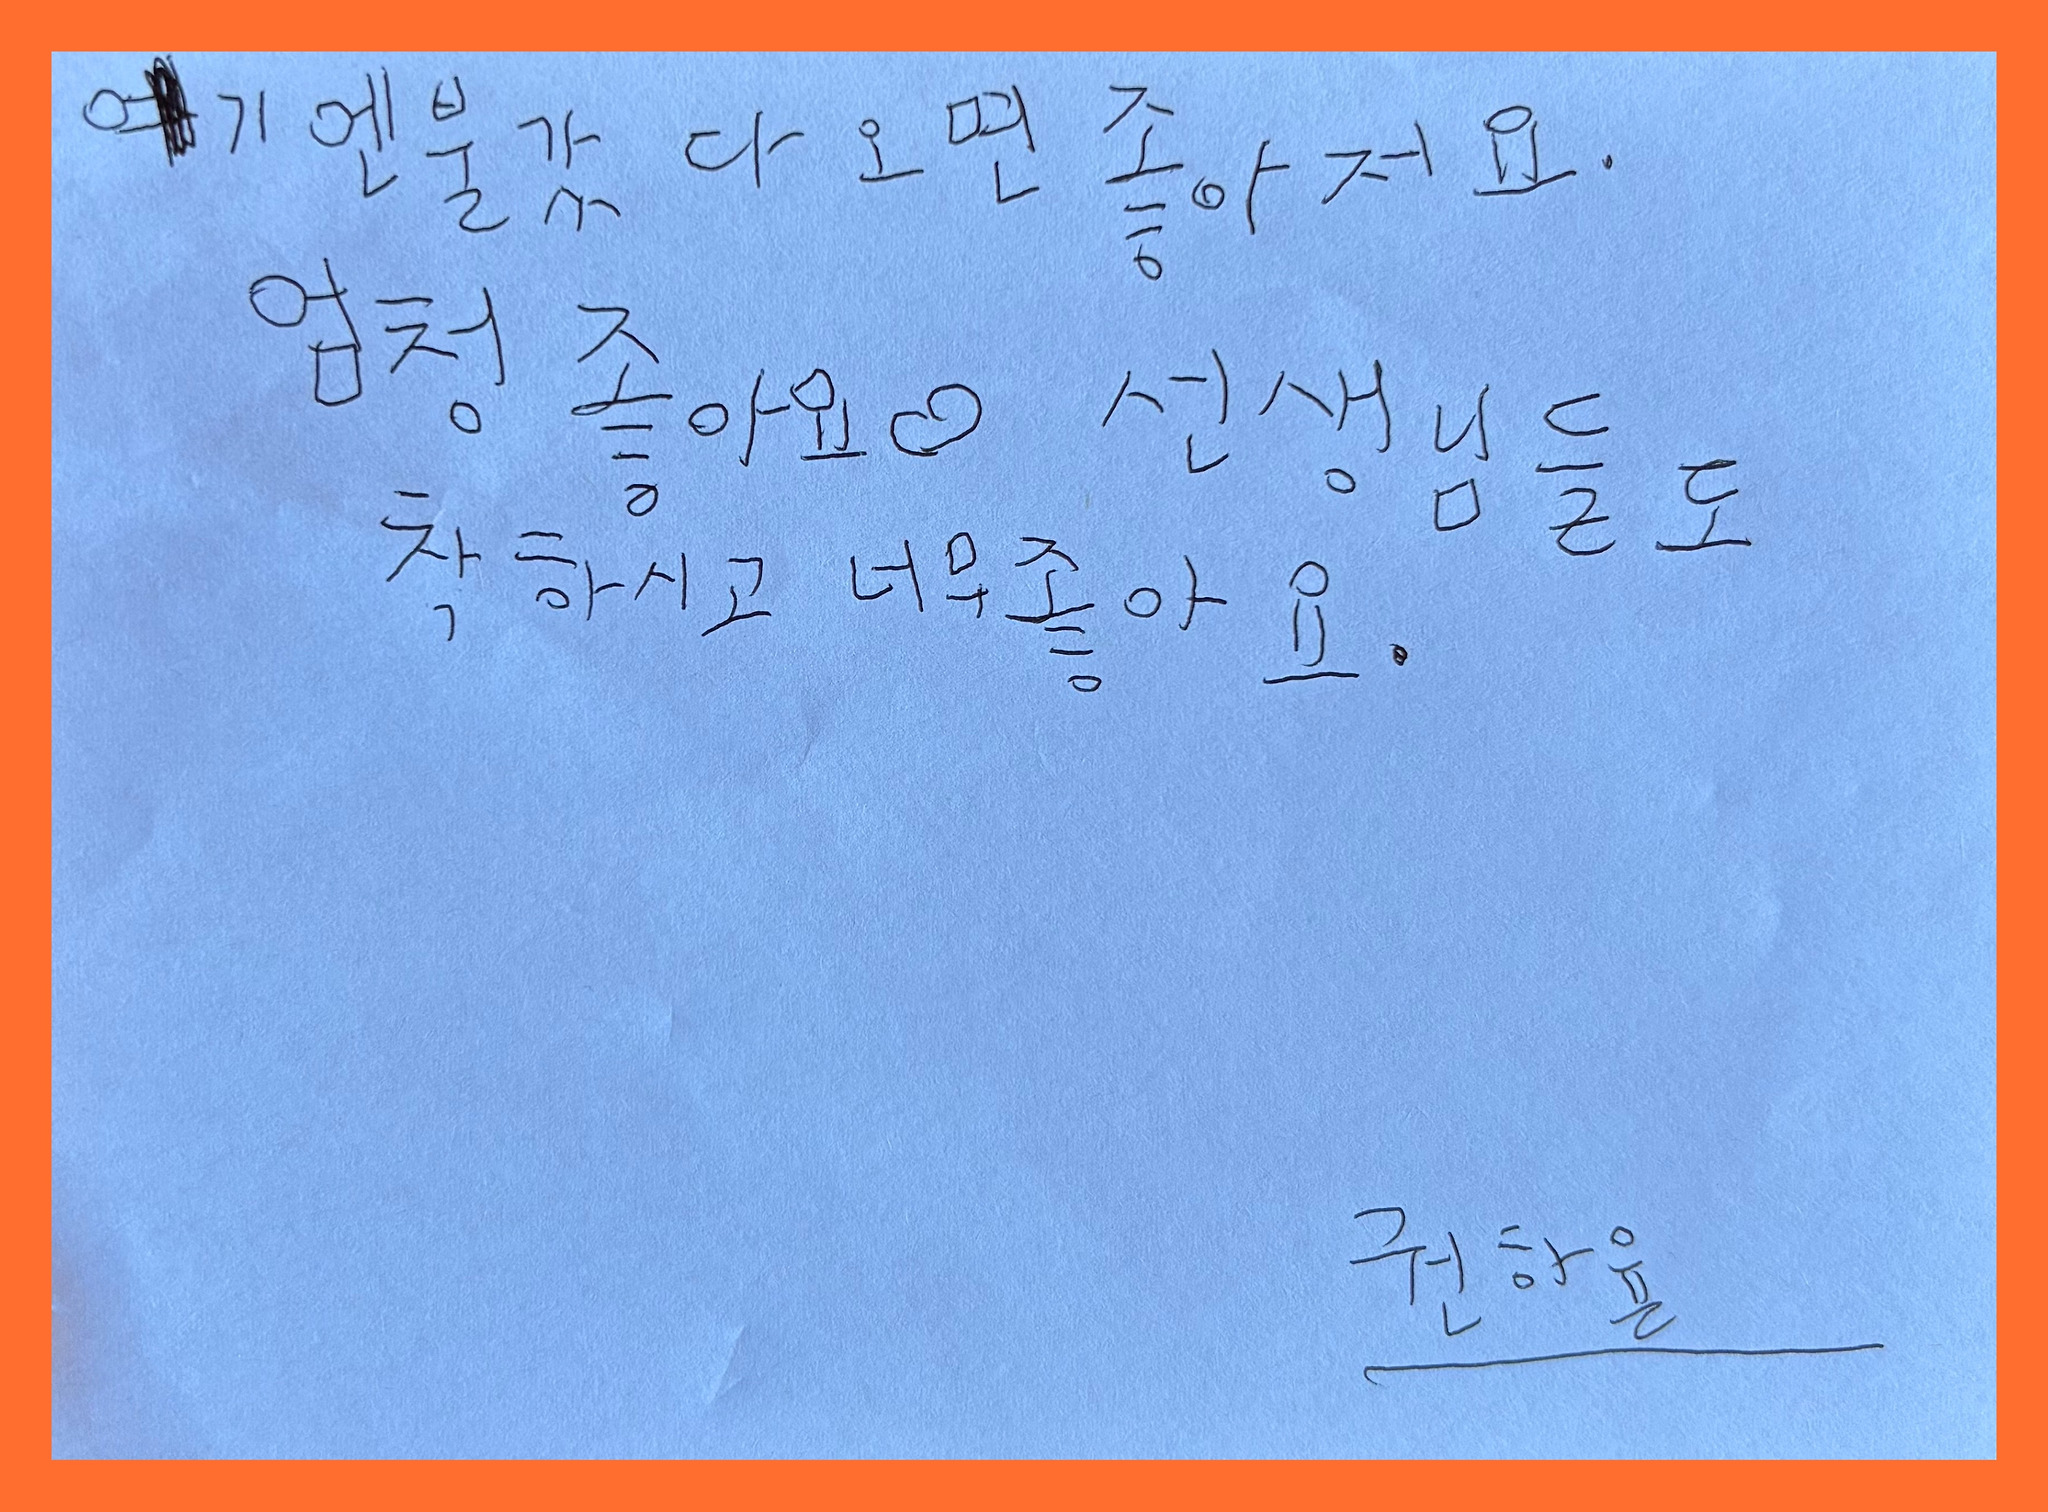 여기엔불갔다오면 좋아저요.
엄청 좋아요 선생님들도
착하시고 너무좋아요.
권하율